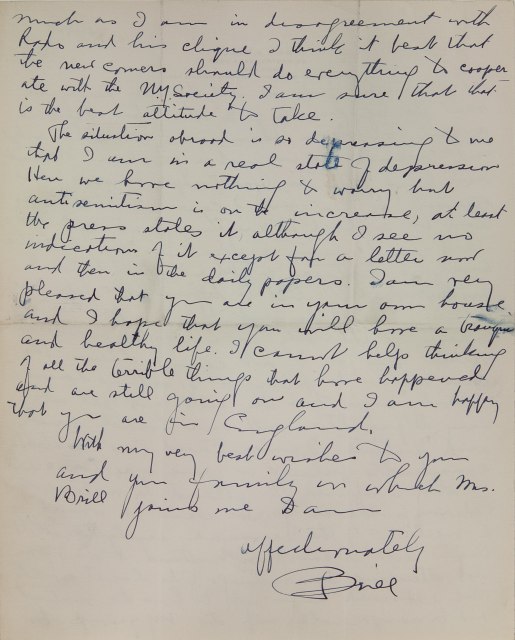 much as I am in disagreement with
Rado and his clique I think it best that
the new comers should do everything to cooper-
ate with the NY Society. I am sure that that
is the best attitude to take.
The situation abroad is so depressing to me
that I am in a real state of depression
Here we have nothing to worry but
antisemitism is on the increase, at least
the press states it although I see no
indications of it except for a letter now
and then in the daily papers. I am very
pleased that you are in your own house
and I hope that you will have a tranquil
and healthy life. I cannot help thinking
of all the terrible things that have happened
and are still going on and I am happy
that you are in England.
With my very best wishes to you
and your family in which Mrs.
Brill joins me I am
affectionately
Brill